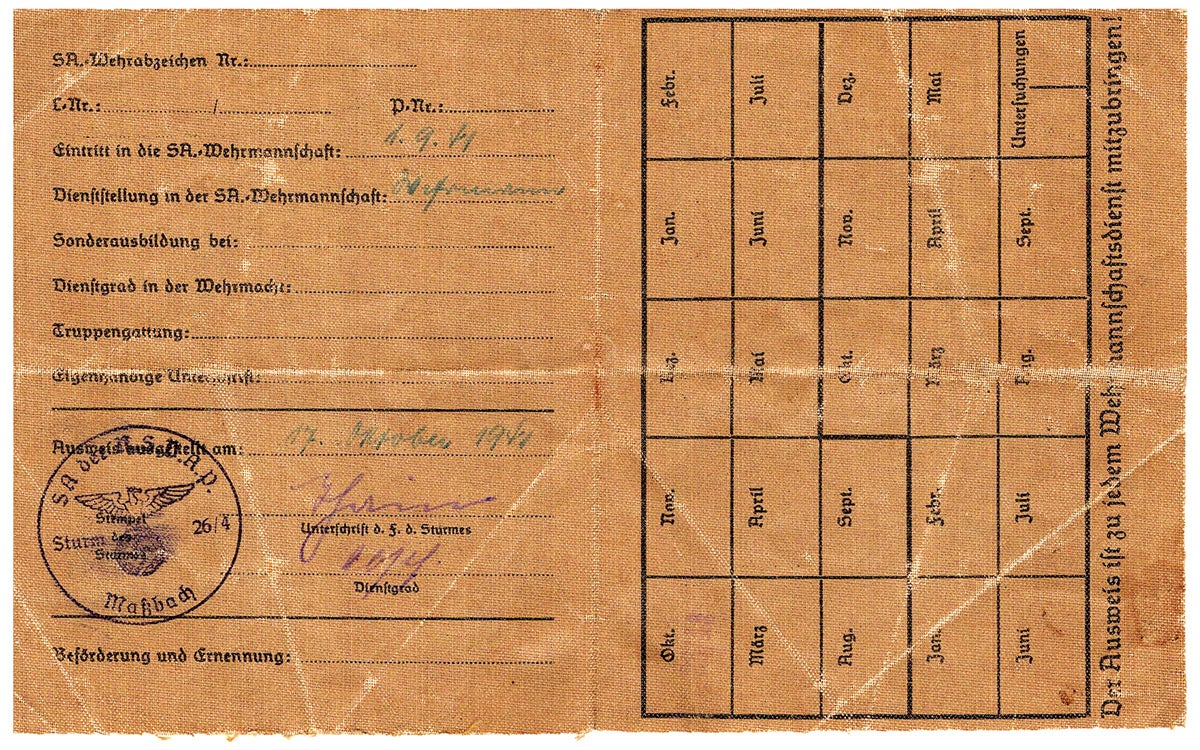 SA.-Wehrabzeichen Nr.:
L.-Nr.: / P.-Nr.:
Eintritt in die SA.-Wehrmannschaft: 1. 9. 41
Dienststellung in der SA.-Wehrmannschaft: Wehrmann
Sonderausbildung bei:
Dienstgrad in der Wehrmacht:
Truppengattung:
Eigenhändige Unterschrift:
Ausweis ausgestellt am: 17. Oktober 1941
SA der N.S.D.A.P.
Stempel
des
Sturmes
Sturm 26/4
Maßbach
Unterschrift d. F. d. Sturmes
Dienstgrad
Beförderung und Ernennung:
Febr. Juli Dez. Mai Untersuchungen
Jan. Juni Nov. April Sept.
Dez. Mai Okt. März Aug.
Nov. April Sept. Febr. Juli
Okt. März Aug. Jan. Juni
Der Ausweis ist zu jedem Wehrmannschaftsdienst mitzubringen!